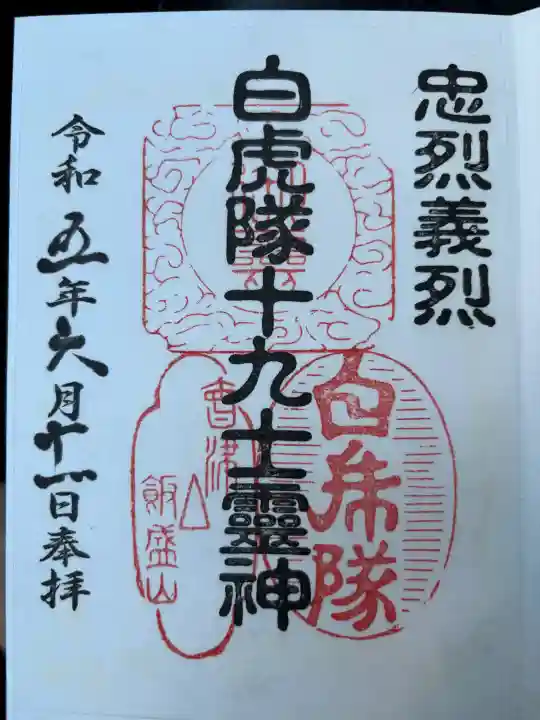 忠烈義烈
白虎隊十九士霊神
白虎隊
會津
飯盛山
令和五年六月十一日奉拝